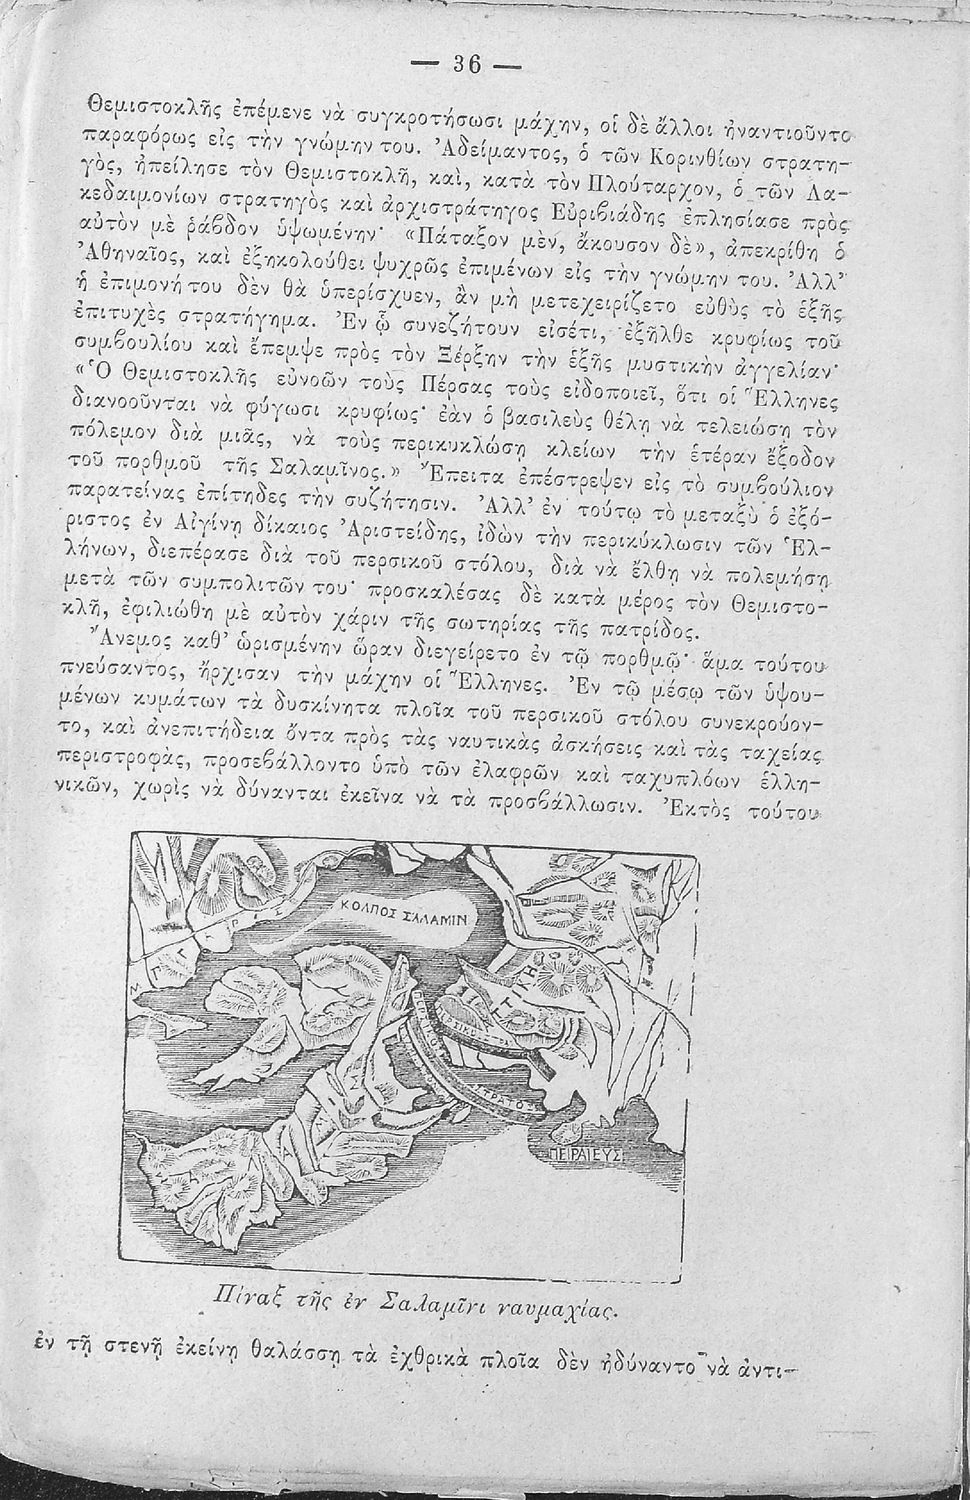 — 36 —
Θεμιστοκλῆς ἐπέμενε νὰ συγκροτήσωσι μάχην, οἱ δὲ ἄλλοι ἠναντιοῦντο
παραφόρως εἰς τὴν γνώμην του. Ἀδείμαντος, ὁ τῶν Κορινθίων στρατη-
γὸς, ἠπείλησε τὸν Θεμιστοκλῆ, καὶ, κατὰ τὸν Πλούταρχον, ὁ τῶν Λα-
κεδαιμονίων στρατηγὸς καὶ ἀρχιστράτηγος Εὐριβιάδης ἐπλησίασε πρὸς
αὐτὸν μὲ ῥάβδον ὑψωμένην· «Πάταξον μὲν, ἄκουσον δὲ», ἀπεκρίθη ὁ
Ἀθηναῖος, καὶ ἐξηκολούθει ψυχρῶς ἐπιμένων εἰς τὴν γνώμην του. Ἀλλ’
ἡ ἐπιμονή του δὲν θὰ ὑπερίσχυεν, ἂν μὴ μετεχειρίζετο εὐθὺς τὸ ἑξῆς
ἐπιτυχὲς στρατήγημα. Ἐν ᾧ συνεζήτουν εἰσέτι, ἐξῆλθε κρυφίως τοῦ
συμβουλίου καὶ ἔπεμψε πρὸς τὸν Ξέρξην τὴν ἑξῆς μυστικὴν ἀγγελίαν·
«Ὁ Θεμιστοκλῆς εὐνοῶν τοὺς Πέρσας τοὺς εἰδοποιεῖ, ὅτι οἱ Ἕλληνες
διανοοῦνται νὰ φύγωσι κρυφίως· ἐὰν ὁ βασιλεὺς θέλη νὰ τελειώση τὸν
πόλεμον διὰ μιᾶς, νὰ τοὺς περικυκλώση κλείων τὴν ἑτέραν ἔξοδον
τοῦ πορθμοῦ τῆς Σαλαμῖνος.» Ἔπειτα ἐπέστρεψεν εἰς τὸ συμβούλιον
παρατείνας ἐπίτηδες τὴν συζήτησιν. Ἀλλ’ ἐν τούτῳ τὸ μεταξὺ ὁ ἐξό-
ριστος ἐν Αἰγίνῃ δίκαιος Ἀριστείδης, ἰδὼν τὴν περικύκλωσιν τῶν Ἑλ-
λήνων, διεπέρασε διὰ τοῦ περσικοῦ στόλου, διὰ νὰ ἔλθῃ νὰ πολεμήσῃ
μετὰ τῶν συμπολιτῶν του· προσκαλέσας δὲ κατὰ μέρος τὸν Θεμιστο-
κλῆ, ἐφιλιώθη μὲ αὐτὸν χάριν τῆς σωτηρίας τῆς πατρίδος.
Ἄνεμος καθ’ ὡρισμένην ὥραν διεγείρετο ἐν τῷ πορθμῷ· ἅμα τούτου
πνεύσαντος, ἤρχισαν τὴν μάχην οἱ Ἕλληνες. Ἐν τῷ μέσῳ τῶν ὑψου-
μένων κυμάτων τὰ δυσκίνητα πλοῖα τοῦ περσικοῦ στόλου συνεκρούον-
το, καὶ ἀνεπιτήδεια ὄντα πρὸς τὰς ναυτικὰς ἀσκήσεις καὶ τὰς ταχείας
περιστροφὰς, προσεβάλλοντο ὑπὸ τῶν ἐλαφρῶν καὶ ταχυπλόων ἑλλη-
νικῶν, χωρὶς νὰ δύνανται ἐκεῖνα νὰ τὰ προσβάλλωσιν. Ἐκτὸς τούτου
ΚΟΛΠΟΣ ΣΑΛΑΜΙΝ
ΣΤΡΑΤΟΣ
ΠΕΙΡΑΙΕΥΣ
Πίναξ τῆς ἐν Σαλαμῖνι ναυμαχίας.
ἐν τῇ στενῇ ἐκείνῃ θαλάσσῃ τὰ ἐχθρικὰ πλοῖα δὲν ἠδύναντο νὰ ἀντι-